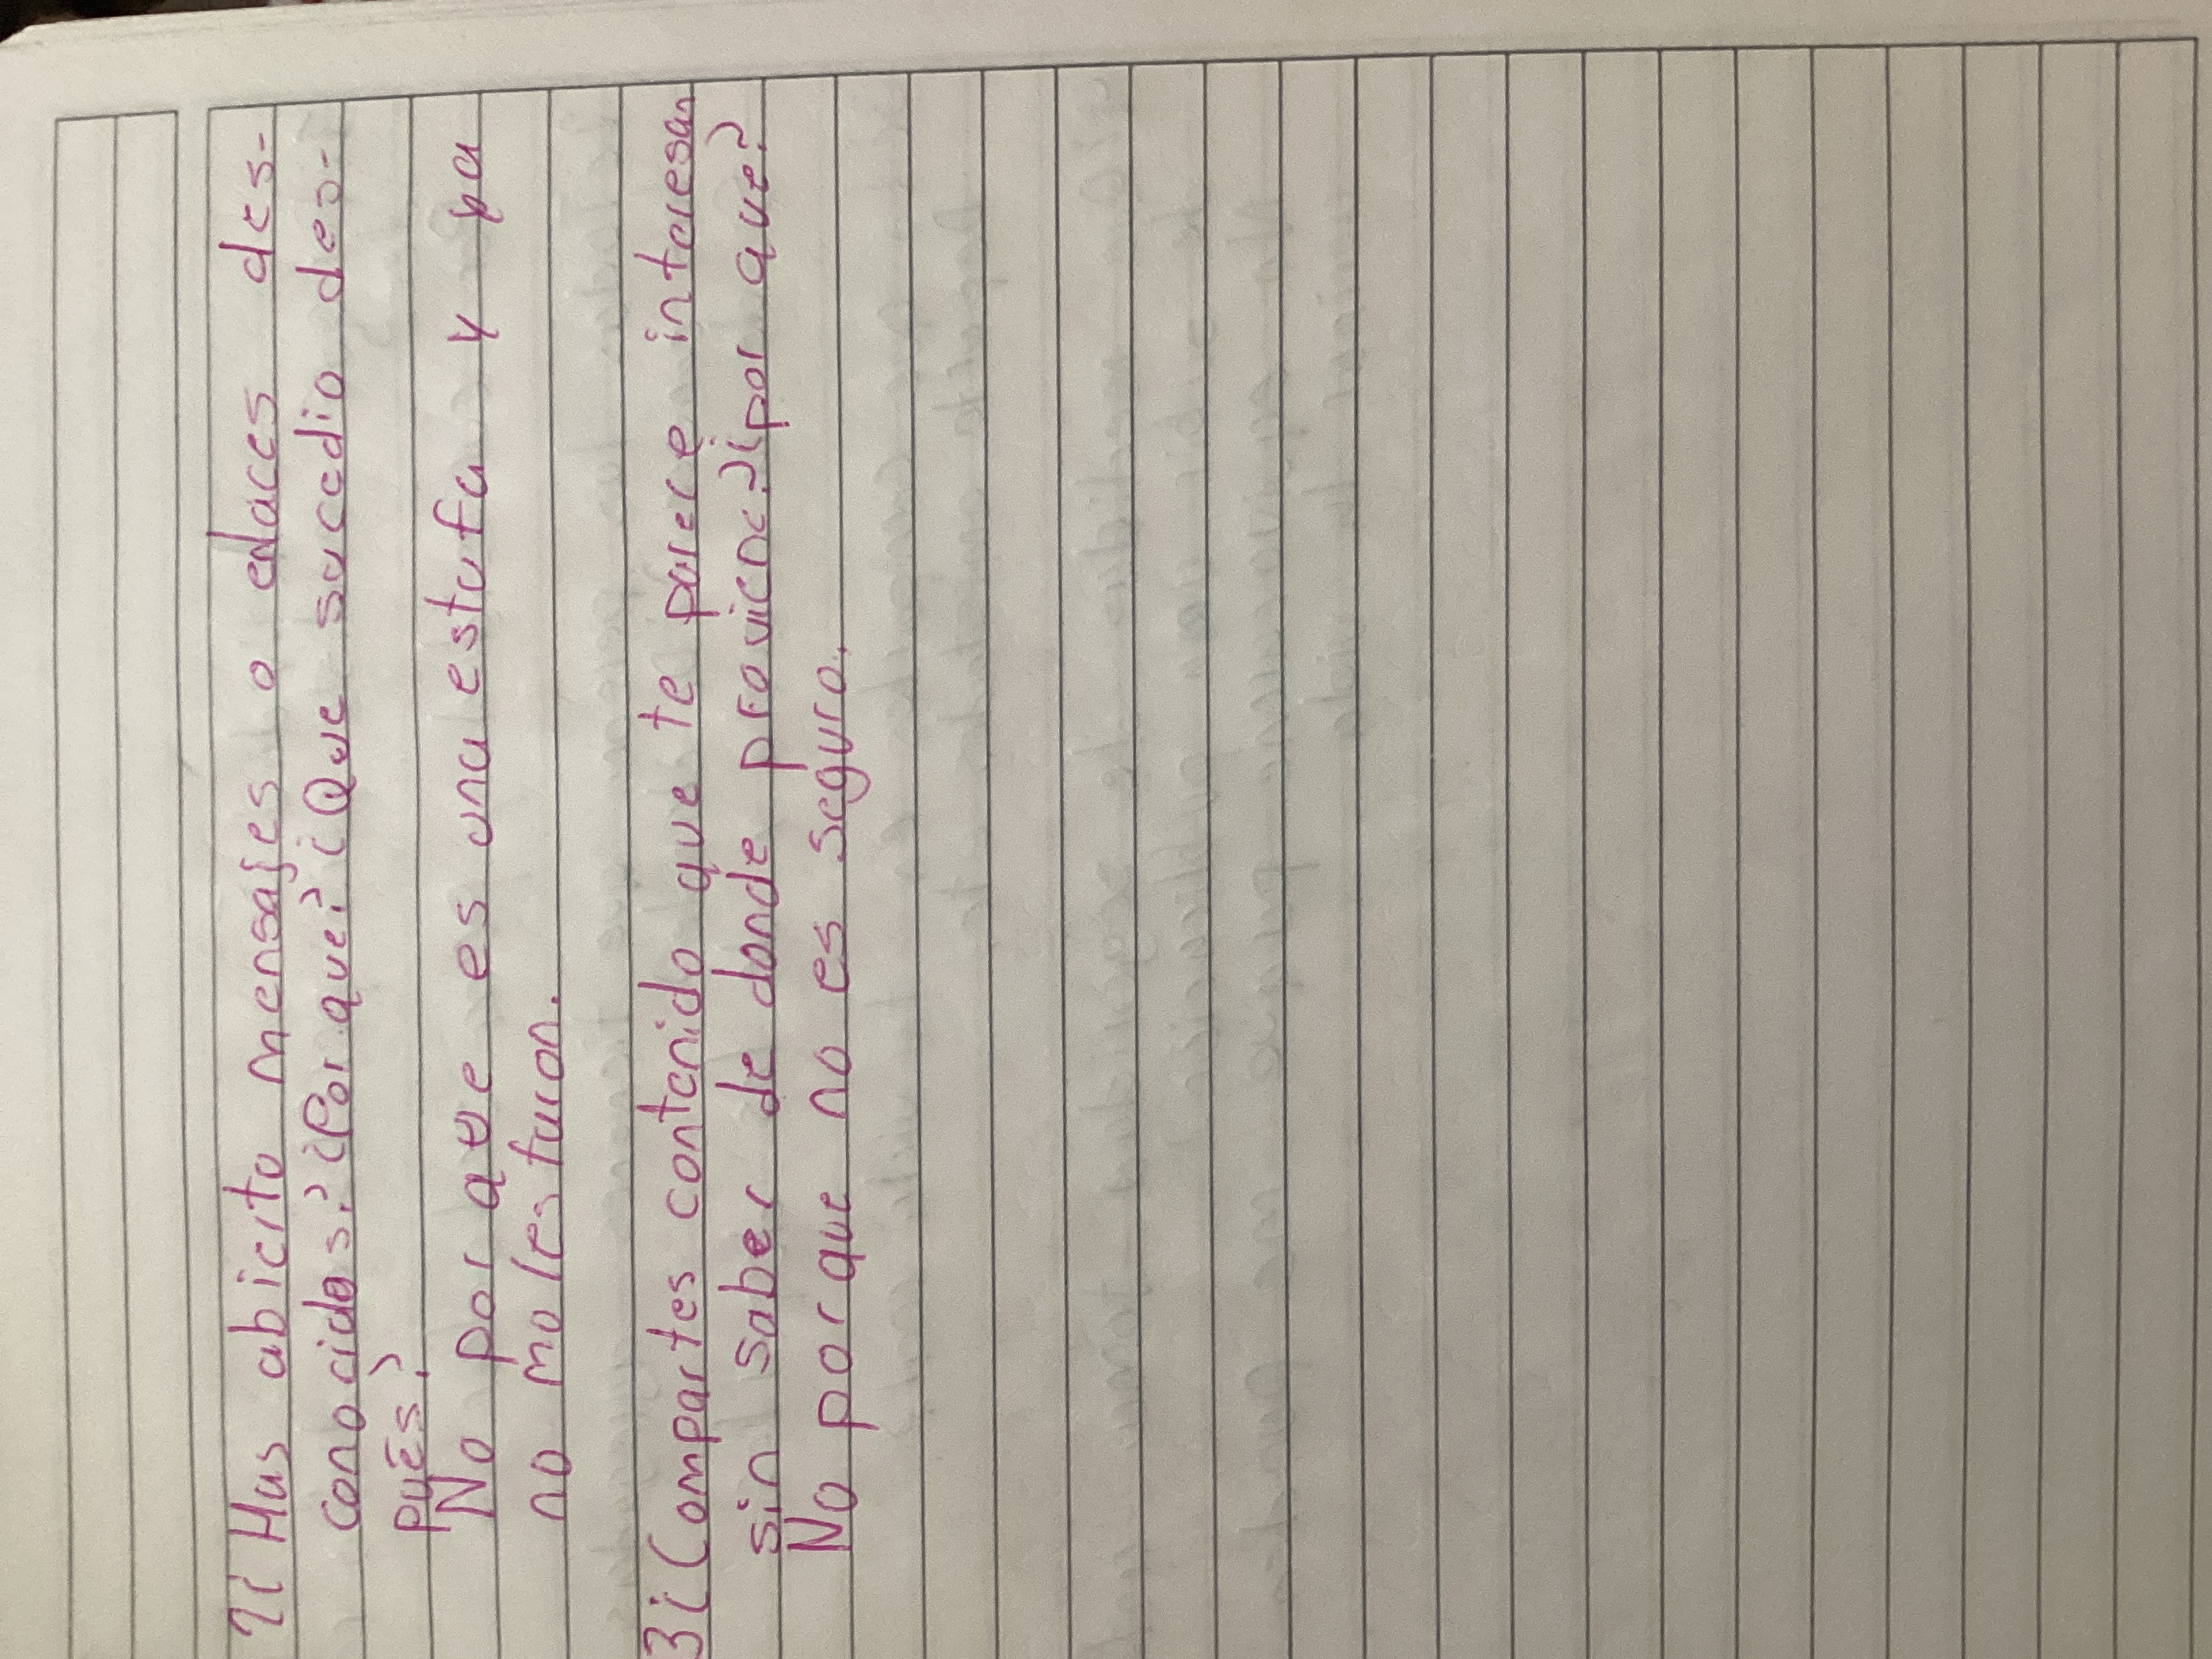 2¿Has abierto mensajes o enlaces des-
conocidos? ¿Por que? ¿Que sucedio des-
pués?
No por que es una estafa y pa
no molestaron.
3¿Compartes contenido que te parece interesan
sin saber de donde proviene? ¿por que?
No por que no es seguro.